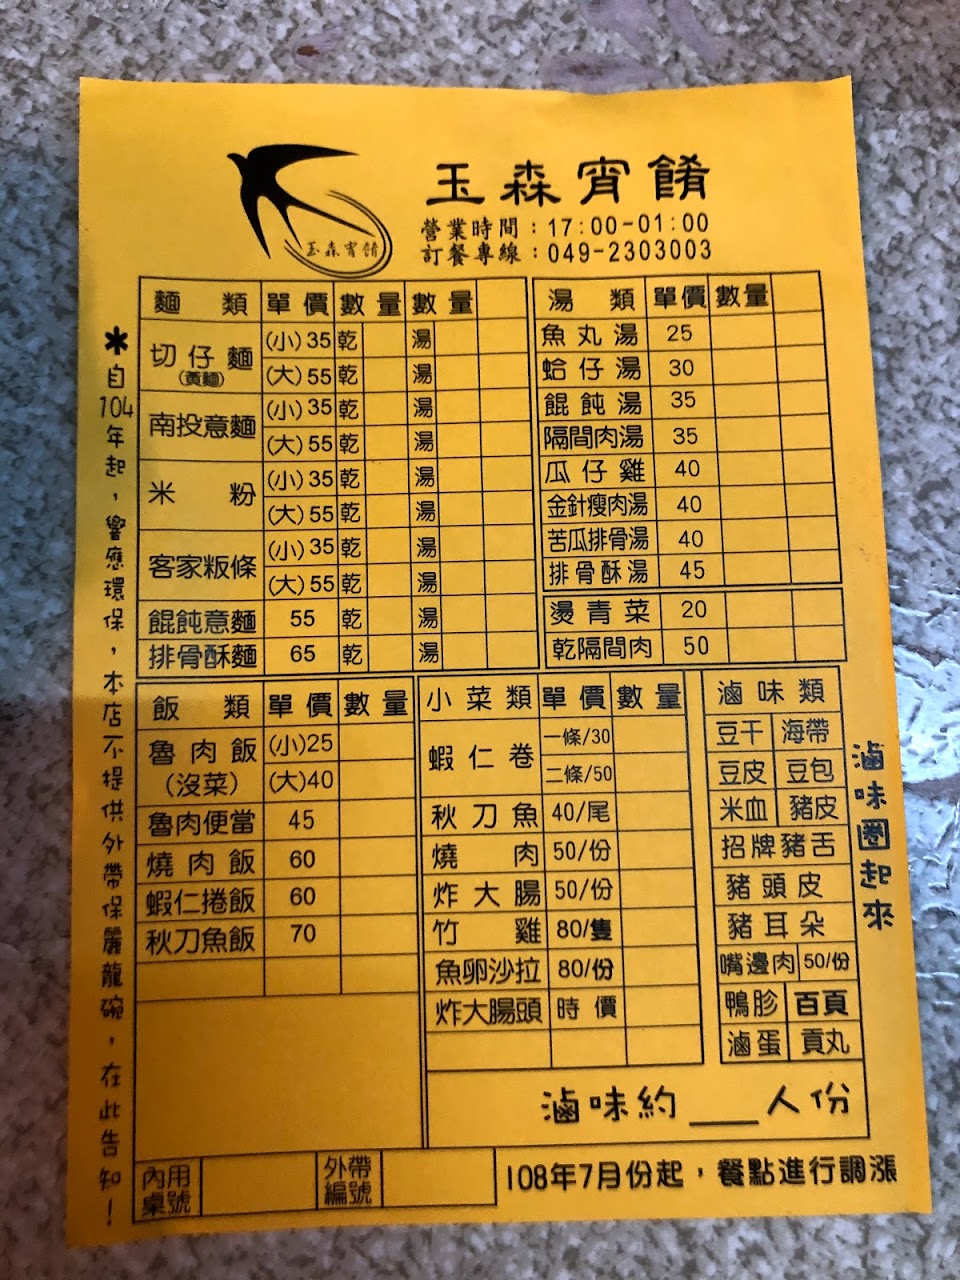 玉森宵餚
營業時間：17:00-01:00
訂餐專線：049-2303003
玉森宵餚
麵類 單價 數量 數量
切仔麵(黃麵) (小)35 乾 湯
(大)55 乾 湯
南投意麵 (小)35 乾 湯
(大)55 乾 湯
米粉 (小)35 乾 湯
(大)55 乾 湯
客家粄條 (小)35 乾 湯
(大)55 乾 湯
餛飩意麵 55 乾 湯
排骨酥麵 65 乾 湯
湯類 單價 數量
魚丸湯 25
蛤仔湯 30
餛飩湯 35
隔間肉湯 35
瓜仔雞 40
金針瘦肉湯 40
苦瓜排骨湯 40
排骨酥湯 45
燙青菜 20
乾隔間肉 50
飯類 單價 數量
魯肉飯 (小)25
(沒菜) (大)40
魯肉便當 45
燒肉飯 60
蝦仁捲飯 60
秋刀魚飯 70
小菜類 單價 數量
蝦仁卷 一條/30
二條/50
秋刀魚 40/尾
燒肉 50/份
炸大腸 50/份
竹雞 80/隻
魚卵沙拉 80/份
炸大腸頭 時價
滷味類
豆干 海帶
豆皮 豆包
米血 豬皮
招牌豬舌
豬頭皮
豬耳朵
嘴邊肉 50/份
鴨胗 百頁
滷蛋 貢丸
滷味圈起來
滷味約___人份
內用桌號 外帶編號
108年7月份起，餐點進行調漲
＊自104年起，響應環保，本店不提供外帶保麗龍碗，在此告知！